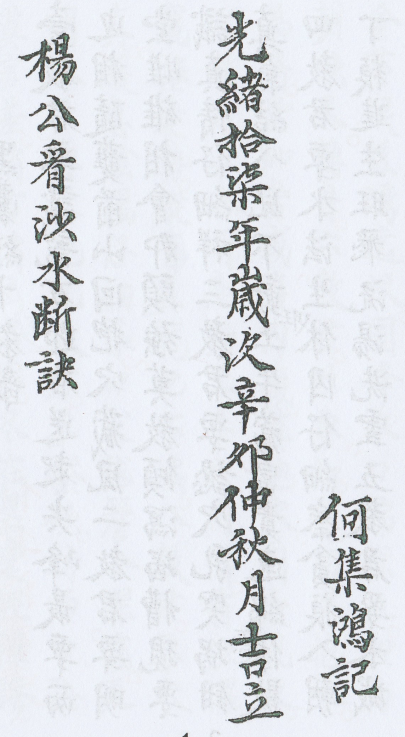 何集鴻記
光緒拾柒年歲次辛卯仲秋月吉立
楊公看沙水断訣